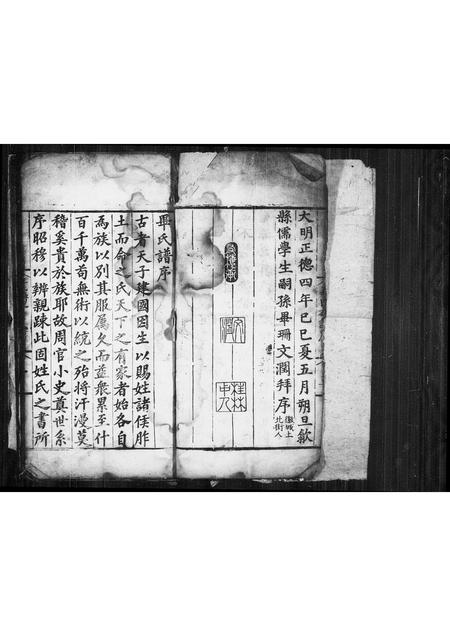 大明正德四年己巳夏五月朔旦歙
縣儒學生嗣孫畢珊文濶拜序
徽城上
北街人
桂林
畢氏譜序
古者天子建國因生以賜姓諸侯胙
土而命之氏天下之有家者始各自
為族以別其服屬久而益衆累至什
百千萬苟無術以統之殆將汗漫莫
稽奚貴於族耶故周官小史奠世系
序昭穆以辨親疎此固姓氏之書所